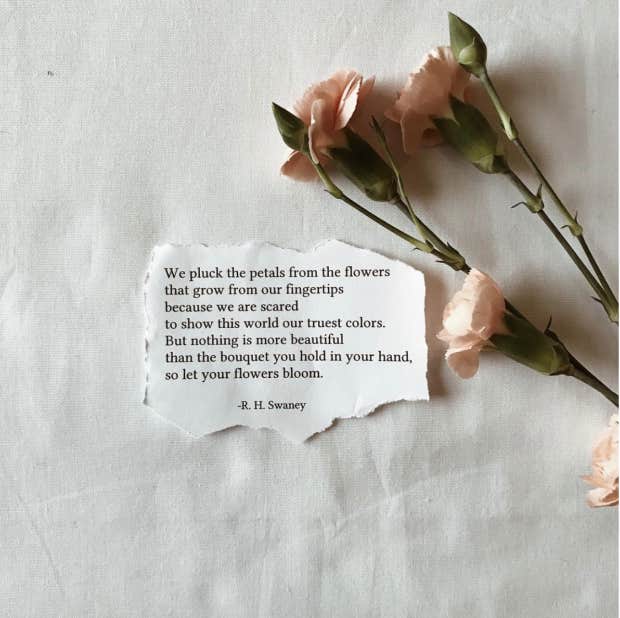 We pluck the petals from the flowers
that grow from our fingertips
because we are scared
to show this world our truest colors.
But nothing is more beautiful
than the bouquet you hold in your hand,
so let your flowers bloom.
-R. H. Swaney